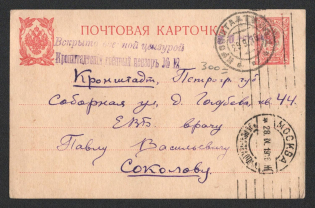 ПОЧТОВАЯ КАРТОЧКА
Вскрыто военной цензурой
Кронштадтъ
Кронштадт, Петрогр. губ
Соборная ул, д. Голубева, кв. 44.
ЕВБ врачу
Павлу Васильевичу
Соколову
МОСКВА